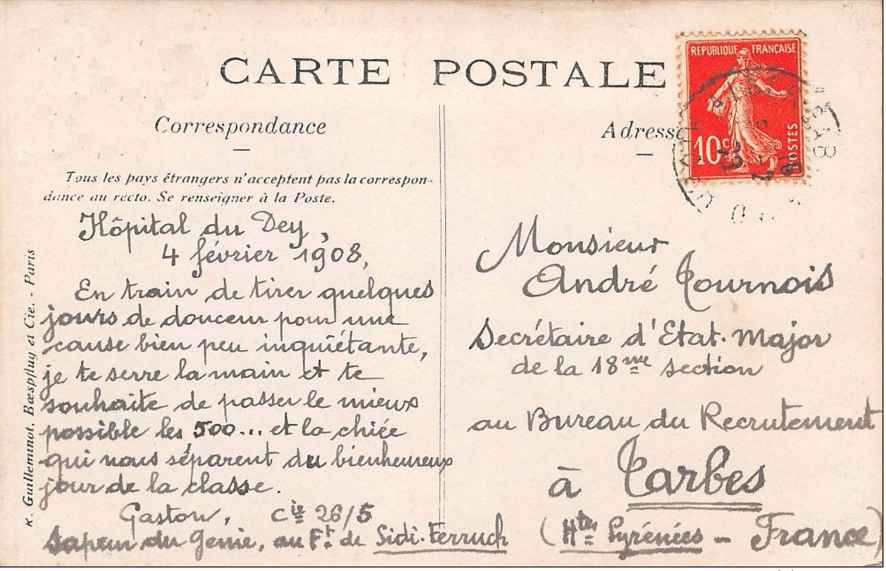 CARTE POSTALE
Correspondance
Tous les pays étrangers n'acceptent pas la correspon-
dance au recto. Se renseigner à la Poste.
Hôpital du Dey,
4 février 1908,
En train de tirer quelques
jours de douceur pour une
cause bien peu inquiétante,
je te serre la main et te
souhaite de passer le mieux
possible les 500... et la chiée
qui nous séparent du bienheureux
jour de la classe.
Gaston, Cie 26/5
Sapeur du Génie, au Ft. de Sidi-Ferruch
K. Guilleminot, Bœspflug et Cie. - Paris
Adresse
REPUBLIQUE FRANÇAISE
10c
POSTES
Monsieur
André Tournois
Secrétaire d'Etat-Major
de la 18me section
au Bureau du Recrutement
à Tarbes
(Htes Pyrénées - France)